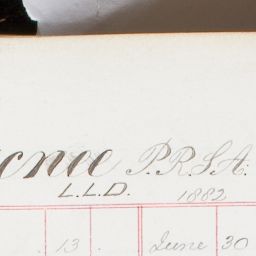 cnee P.R.S.A.
L.L.D. 1882
13 June 30